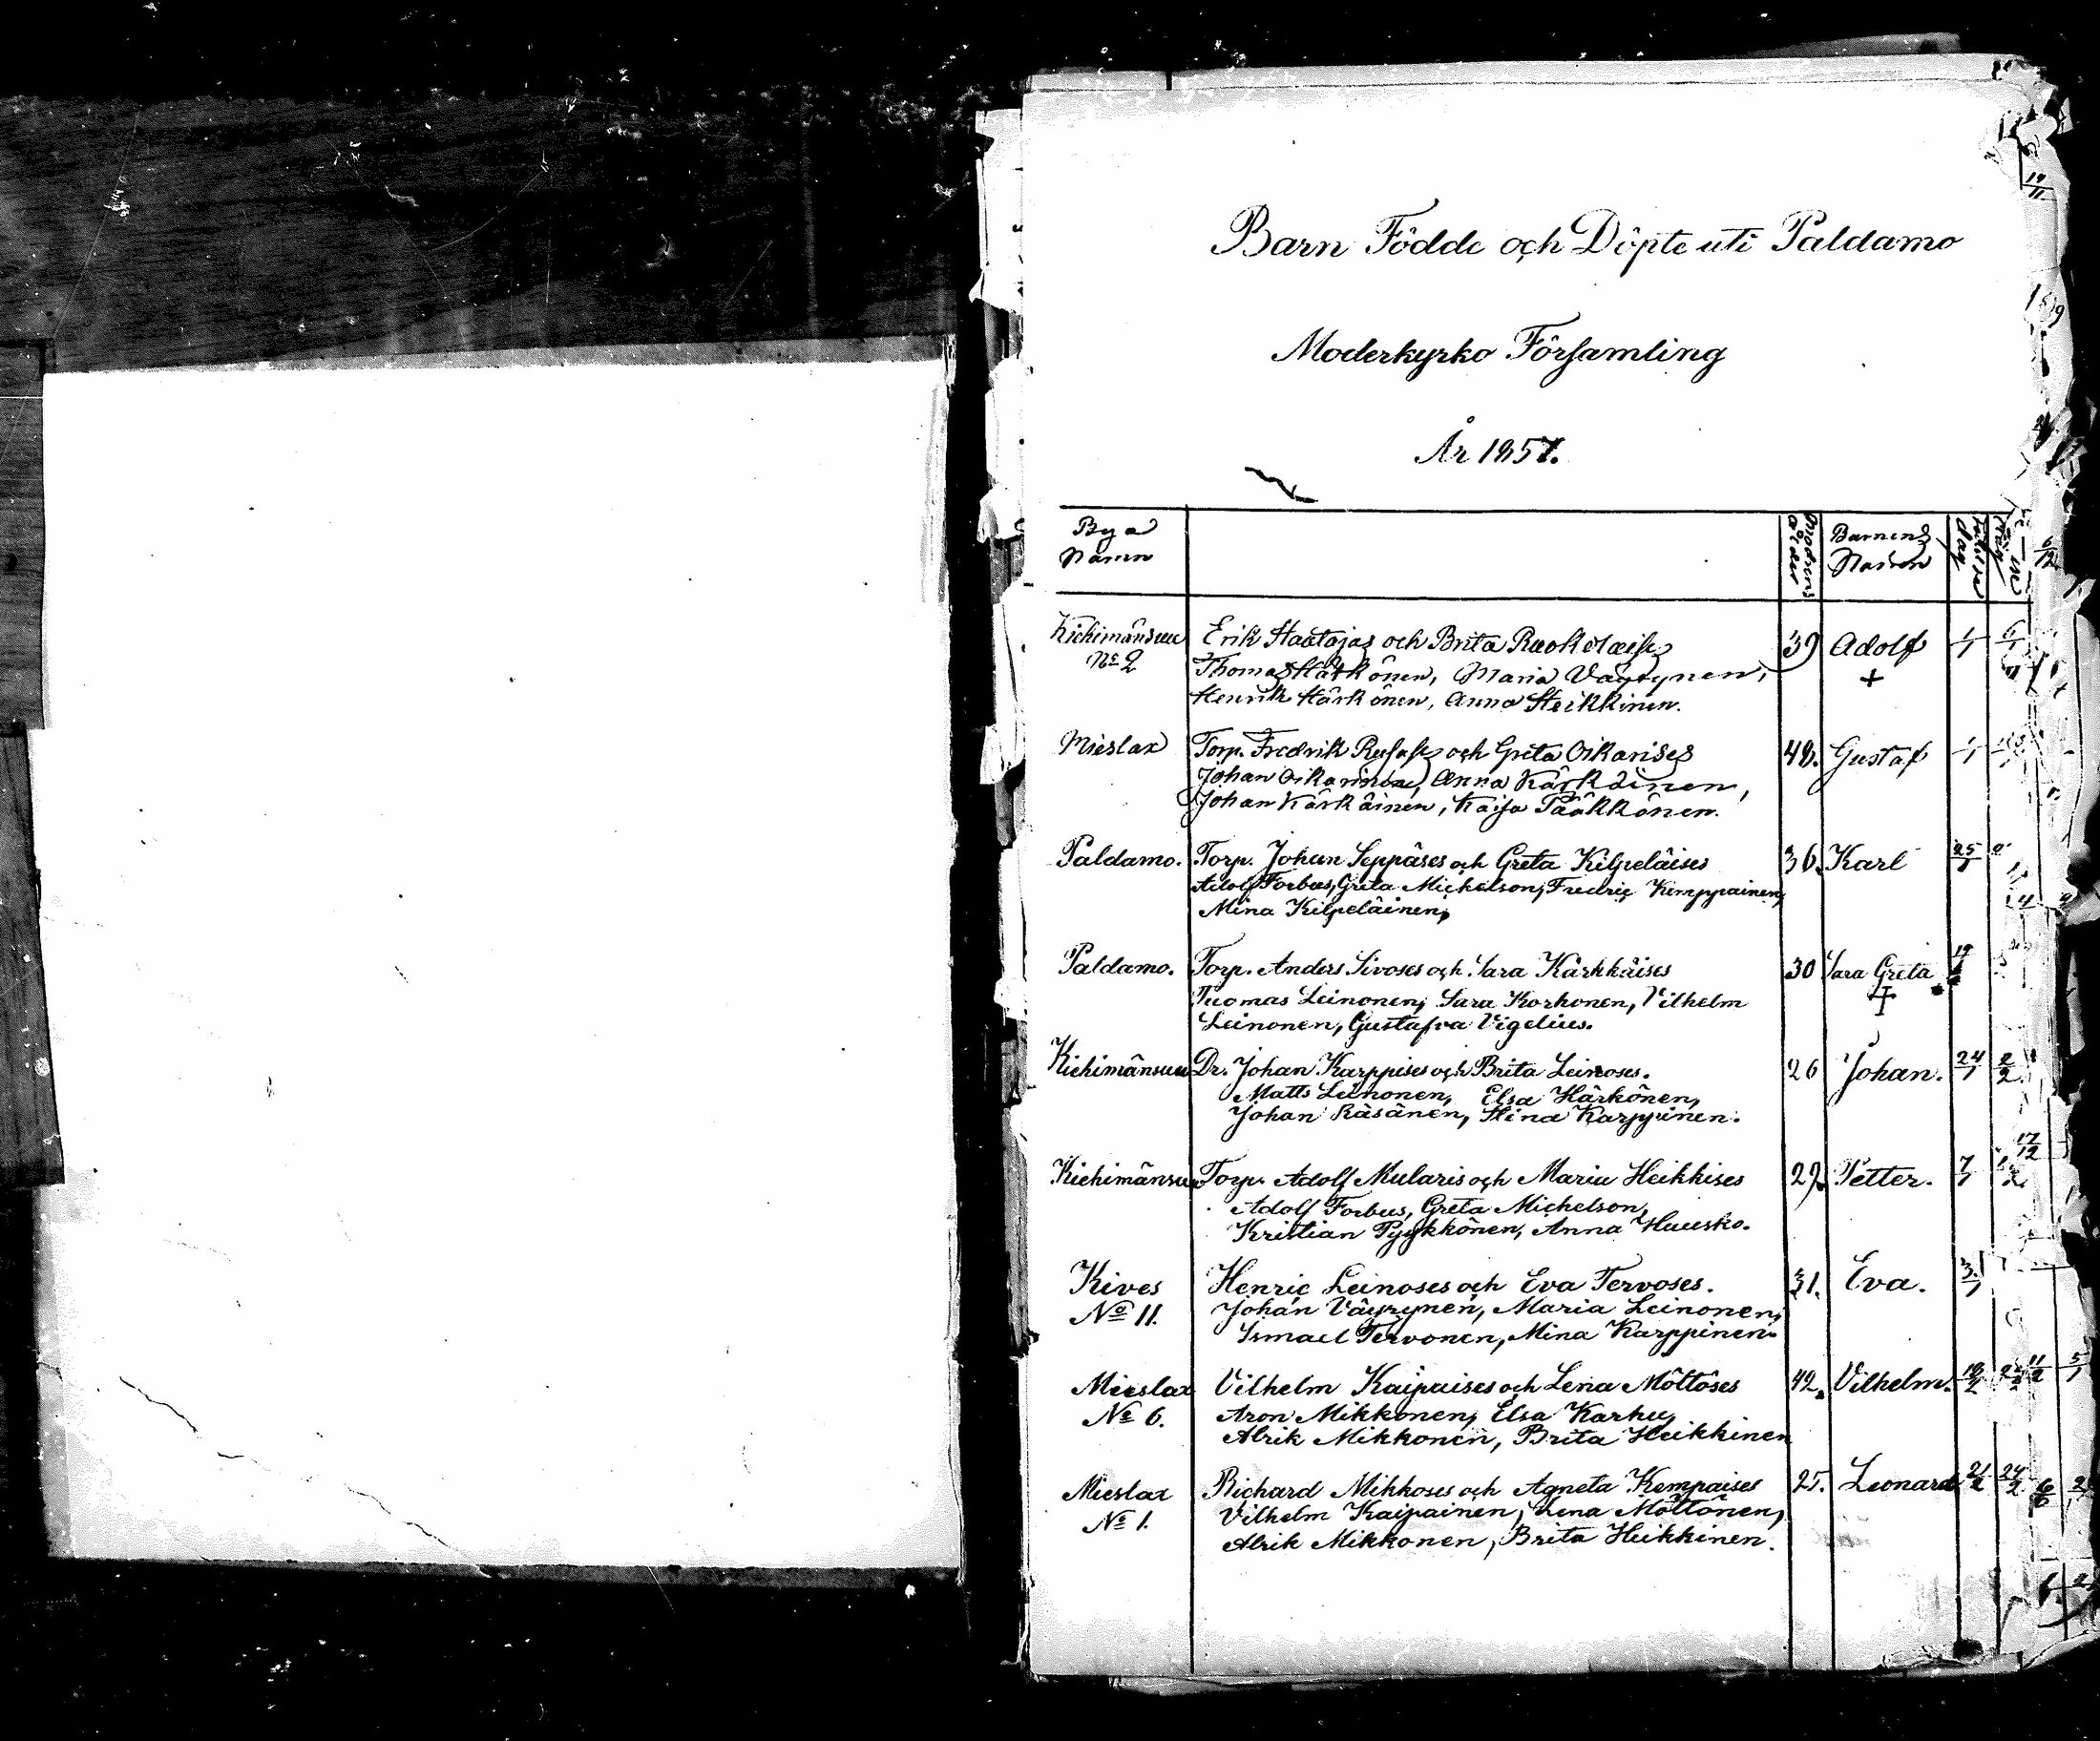 Barn Födde och Döpte uti Paldamo
Moderkyrko Församling
År 1857.
Bya Namn
Modrens ålder
Barnens Namn
Kiehimänsuu Erik Haatajas och Brita 39 Adolf
No 2 Thomas Härkönen, Maria Väyrynen, +
Henrik Härkönen, Anna Heikkinen.
Mieslax Torp. Fredrik och Greta Oikarises 42. Gustaf
Johan Oikarinen, Anna Kärkäinen,
Johan Kärkäinen, Kaisa Pääkkönen.
Paldamo. Torp. Johan Seppäses och Greta Kilpeläises 36. Karl 25/1
Adolf Forbus, Greta Michelson, Fredric Kemppainen,
Mina Kilpeläinen,
Paldamo. Torp. Anders Sivoses och Sara Kärkkäises 30 Sara Greta
Tuomas Leinonen, Sara Korhonen, Vilhelm +
Leinonen, Gustafva Vigelius.
Kiehimänsuu Dr. Johan Karppises och Brita Leinoses. 26 Johan. 24/1 2/2
Matts Leinonen, Elsa Härkönen,
Johan Räsänen, Stina Karppinen.
Kiehimänsuu Torp. Adolf Mularis och Maria Heikkises 29. Petter. 7/1
Adolf Forbus, Greta Michelson,
Kristian Pyykkönen, Anna Huusko.
Kives Henric Leinoses och Eva Tervoses. 31. Eva. 31/1
No 11. Johan Väyrynen, Maria Leinonen,
Ismael Tervonen, Mina Karppinen.
Mieslax Vilhelm Kaipaises och Lena Möttöses 42. Vilhelm.
No 6. Aron Mikkonen, Elsa Karhu,
Alrik Mikkonen, Brita Heikkinen
Mieslax Richard Mikkoses och Agneta Kempaises 25. Leonard 21/2 24/2
No 1. Vilhelm Kaipainen, Lena Möttönen,
Alrik Mikkonen, Brita Heikkinen.